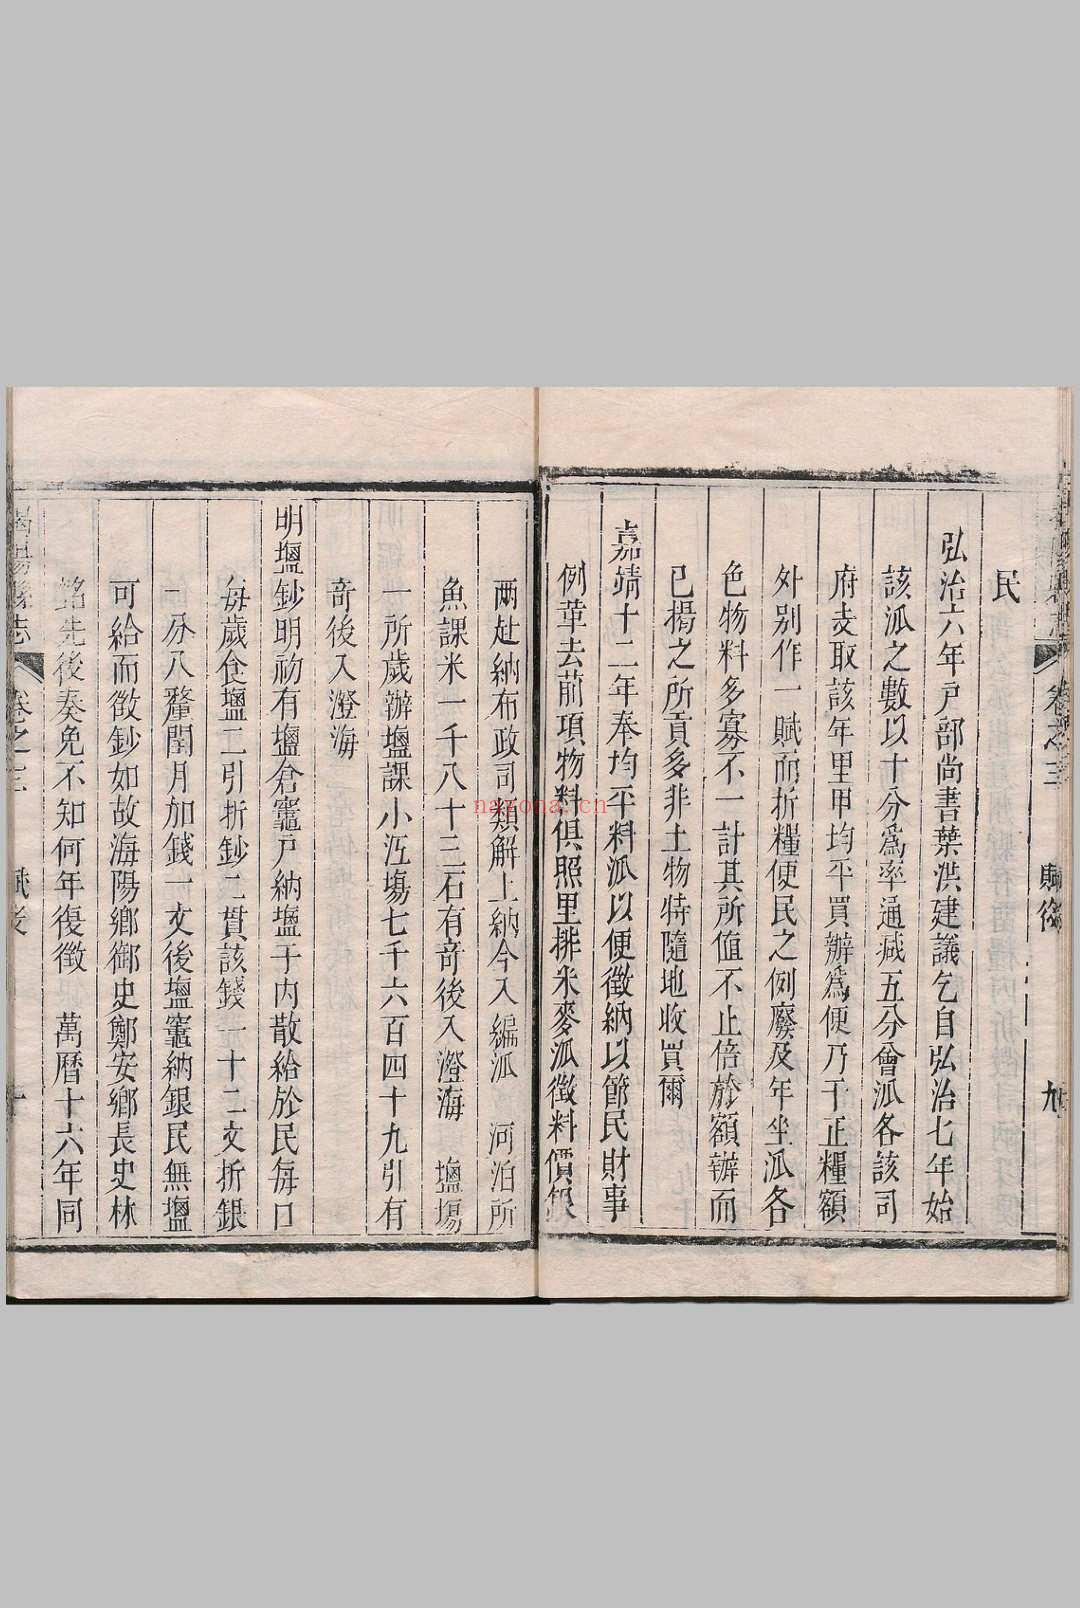 民
弘治六年戸部尚書葉淇建議乞自弘治七年始
該派之數以十分爲率通减五分會派各該司
府支取該年里甲均平買辦爲便乃于正糧額
外别作一賦而折糧便民之例廢及年坐派各
色物料多寡不一計其所值不止倍於額辦而
已揭之所貢多非土物特隨地收買爾
嘉靖十二年奉均平料派以便徵納以節民財事
例革去前項物料俱照里排米麥派徵料價銀
卷之三
賦役
九
两赴納布政司類解上納今入編派 河泊所
魚課米一千八十三石有奇後入澄海 塩場
一所歲辦塩課小江塲七千六百四十九引有
奇後入澄海
明塩鈔明初有塩倉竈戸納塩于内散給於民每口
每歲食塩二引折鈔二貫該錢一十二文折銀
一分八釐閏月加錢一文後塩竈納銀民無塩
可給而徵鈔如故海陽鄉御史鄭安鄉長史林
銘先後奏免不知何年復徵 萬曆十六年同
揭陽縣志
卷之三
賦役
十
nayona.cn